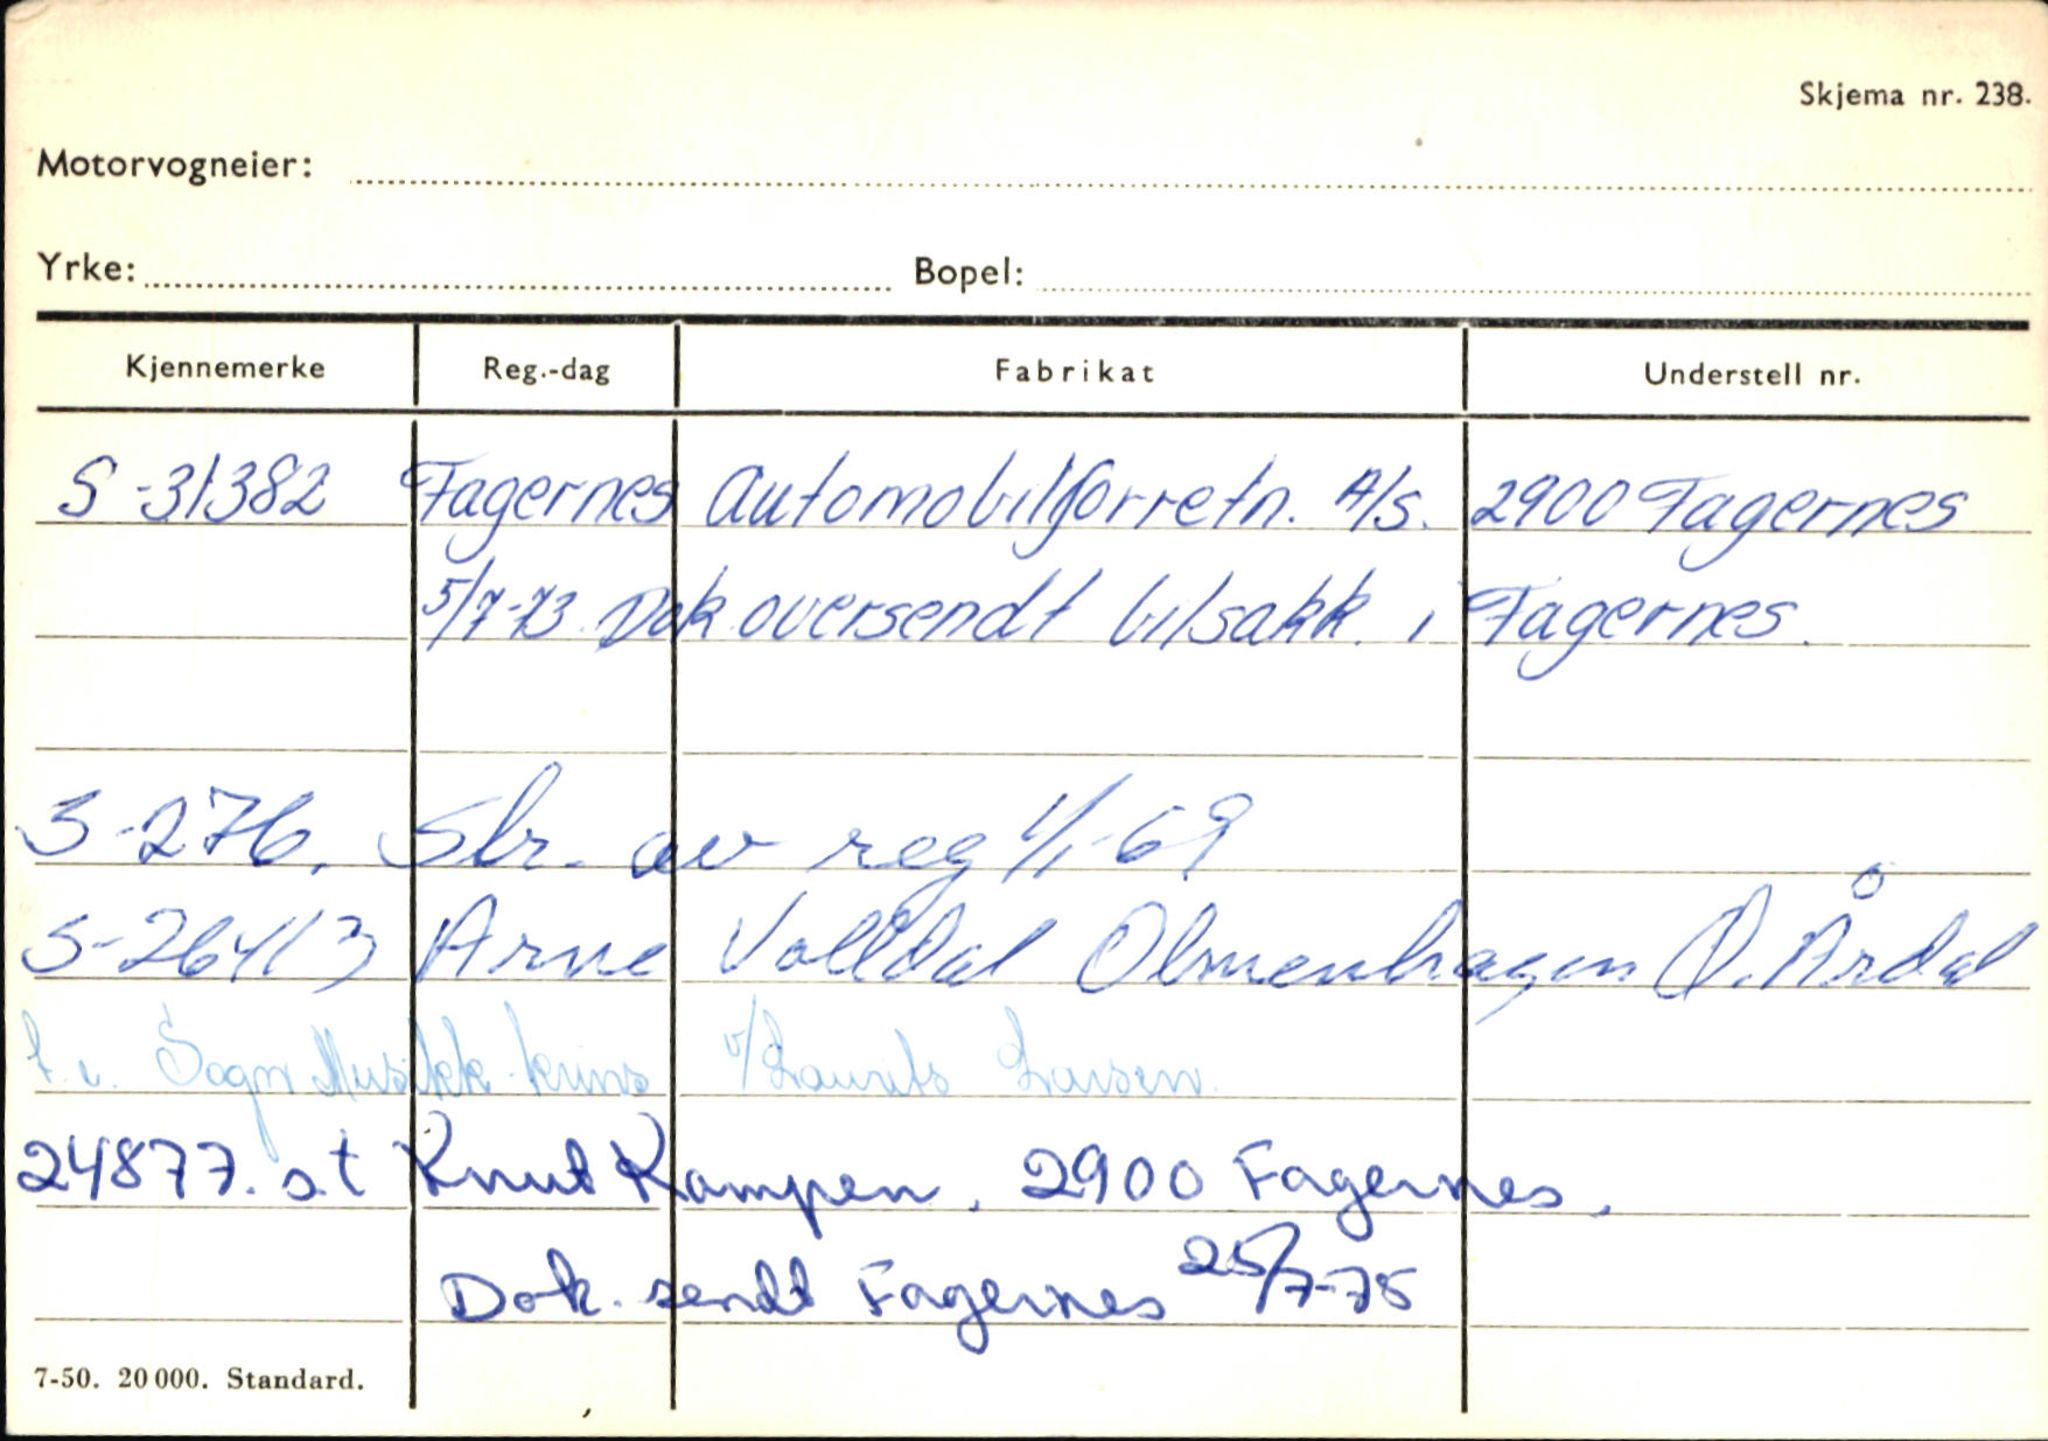 Skjema nr. 238.
Motorvogneier:
Yrke: Bopel:
Kjennemerke Reg.-dag Fabrikat Understell nr.
S-31382 Fagernes Automobilforretn. A/s. 2900 Fagernes
5/7-73. Dok oversendt bilsakk. i Fagernes.
S-276. Slr. av reg 1/1-69
S-26413 Arne Volldal Olmenhagen Ø. Årdal
Sogn Musikk v/Laurits Larsen.
24877. s.t Knut Kampen, 2900 Fagernes.
Dok. sendt Fagernes 25/7-75
7-50. 20 000. Standard.